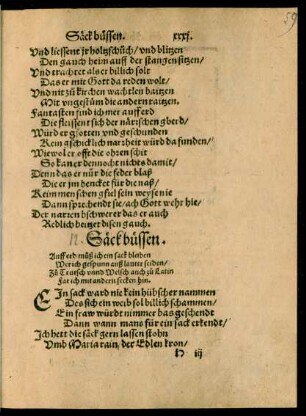 Säck büssen. xxxj.
Vnd liessent jr holtzschůch / vnd blitzen
Den gauch heim auff der stangen sitzen /
Vnd trachtet als er billich solt
Das er mit Gott da reden wolt /
Vnd nit zů kirchen wachtlen baitzen
Mit vngestüm die andern raitzen.
Fantasten find ich mer auff erd
Die fleissent sich der närrischen gberd /
Würd er gsotten vnd geschunden
Kein gschicklich narrheit würd da funden /
Wiewol er offt die ohren schit
So kan er dennocht nichts damit /
Denn das er nür die feder blaß
Die er jm hencket für die naß /
Keim menschen gful sein weyse nie
Dann sprechendt sie / ach Gott wehr hie /
Der narren bschwerer das er auch
Redlich beitzet disen gauch.
12. Säck büssen.
Auff erd můß ich ein sack bleiben
Wer ich gespunn auß lauter seiden /
Zů Teutsch vnnd Welsch auch zů Latin
Far ich mit andern secken hin.
Ein sack ward nie kein hübscher nammen
Des sich ein weib sol billich schammen /
Ein fraw würdt nimmer bas geschendt
Dann wann mans für ein sack erkendt /
Ich hett die säck gern lassen stohn
Vmb Maria rain / der Edlen kron /
H iij
59